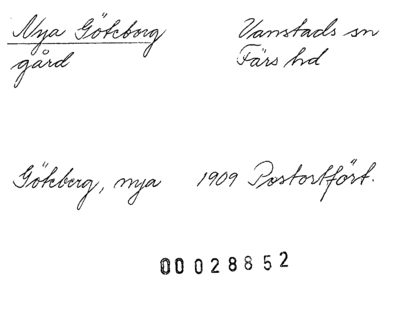 Nya Göteborg Vanstads sn
gård Färs hd
Göteborg, nya 1909 Postortfört.
00028852